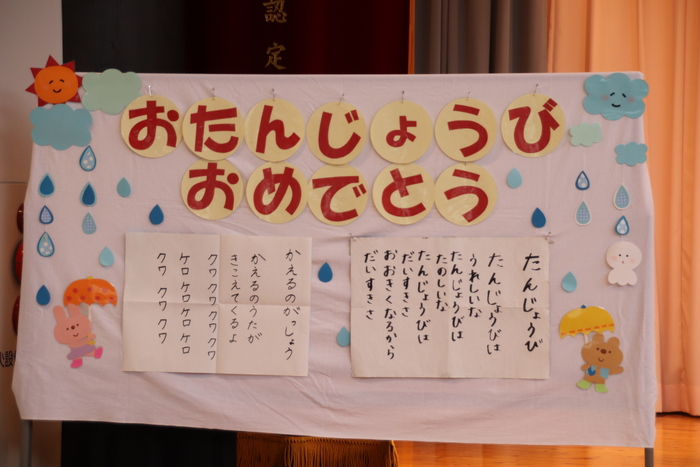 認定
おたんじょうび
おめでとう
たんじょうび
たんじょうびは
うれしいな
たんじょうびは
たのしいな
たんじょうびは
だいすきさ
おおきくなるから
だいすきさ
かえるのがっしょう
かえるのうたが
きこえてくるよ
クワ クワ クワ クワ
ケロ ケロ ケロ ケロ
クワ クワ クワ